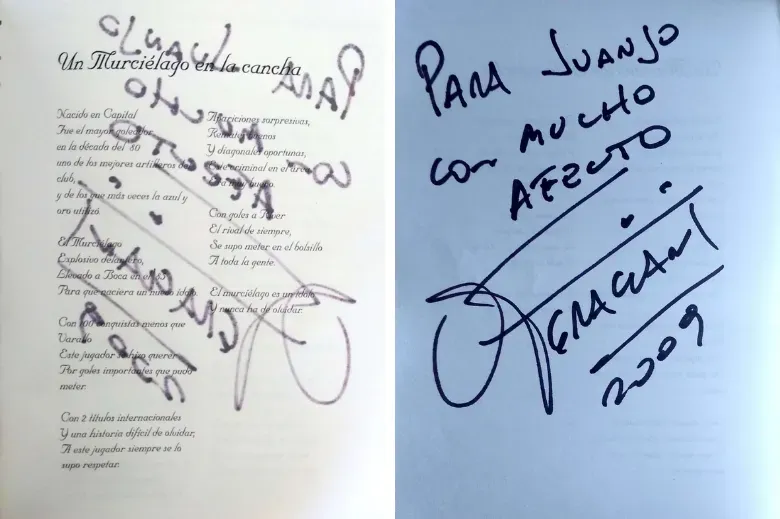 Un Murciélago en la cancha
Nacido en Capital
Fue el mayor goleador
en la década del 80
uno de los mejores artilleros del
club,
y de los que más veces la azul y
oro utilizó.
El Murciélago
Explosivo delantero,
Elevado a Boca en el 85
Para que naciera un nuevo ídolo.
Con 100 conquistas menos que
Varallo
Este jugador se hizo querer
Por goles importantes que pudo
meter.
Con 2 títulos internacionales
Y una historia difícil de olvidar,
A este jugador siempre se lo
supo respetar.
Apariciones sorpresivas,
Remates buenos
Y diagonales oportunas,
Este criminal en el área
Con goles a River
El rival de siempre,
Se supo meter en el bolsillo
A toda la gente.
El murciélago es un ídolo
Y nunca ha de olvidar.
PARA JUANJO
CON MUCHO
AFECTO
GRACIANI
2009